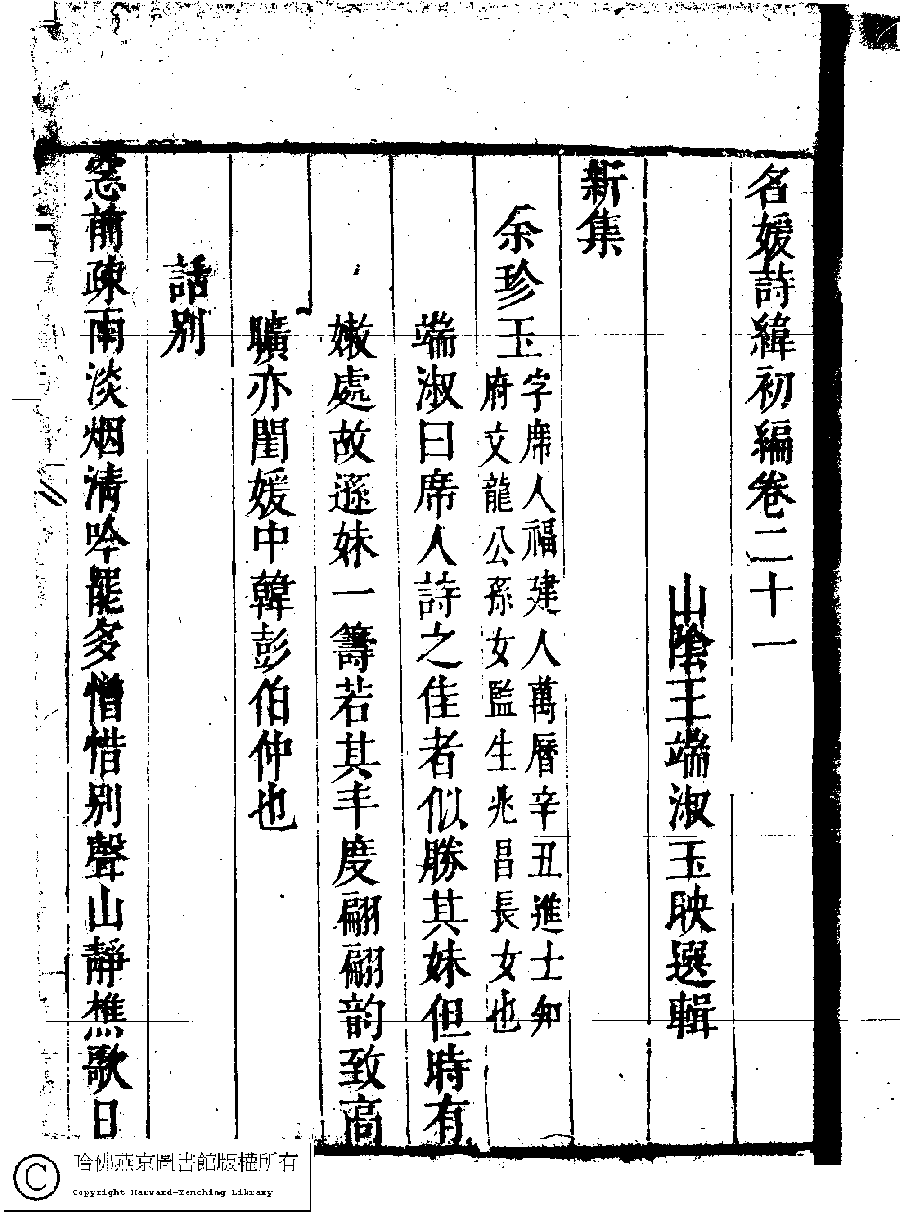 名媛詩緯初編卷二十一
山陰王端淑玉映選輯
新集
余珍玉
字席人福建人萬曆辛丑進士知
府文龍公孫女監生兆昌長女也
端淑曰席人詩之佳者似勝其妹但時有
嫩處故遜妹一籌若其丰度翩翩韵致高
曠亦閨媛中韓彭伯仲也
話别
窓前疎雨淡烟清吟罷多憎惜别聲山靜樵歌日
哈佛燕京圖書館版權所有
Copyright Harvard-Yenching Library